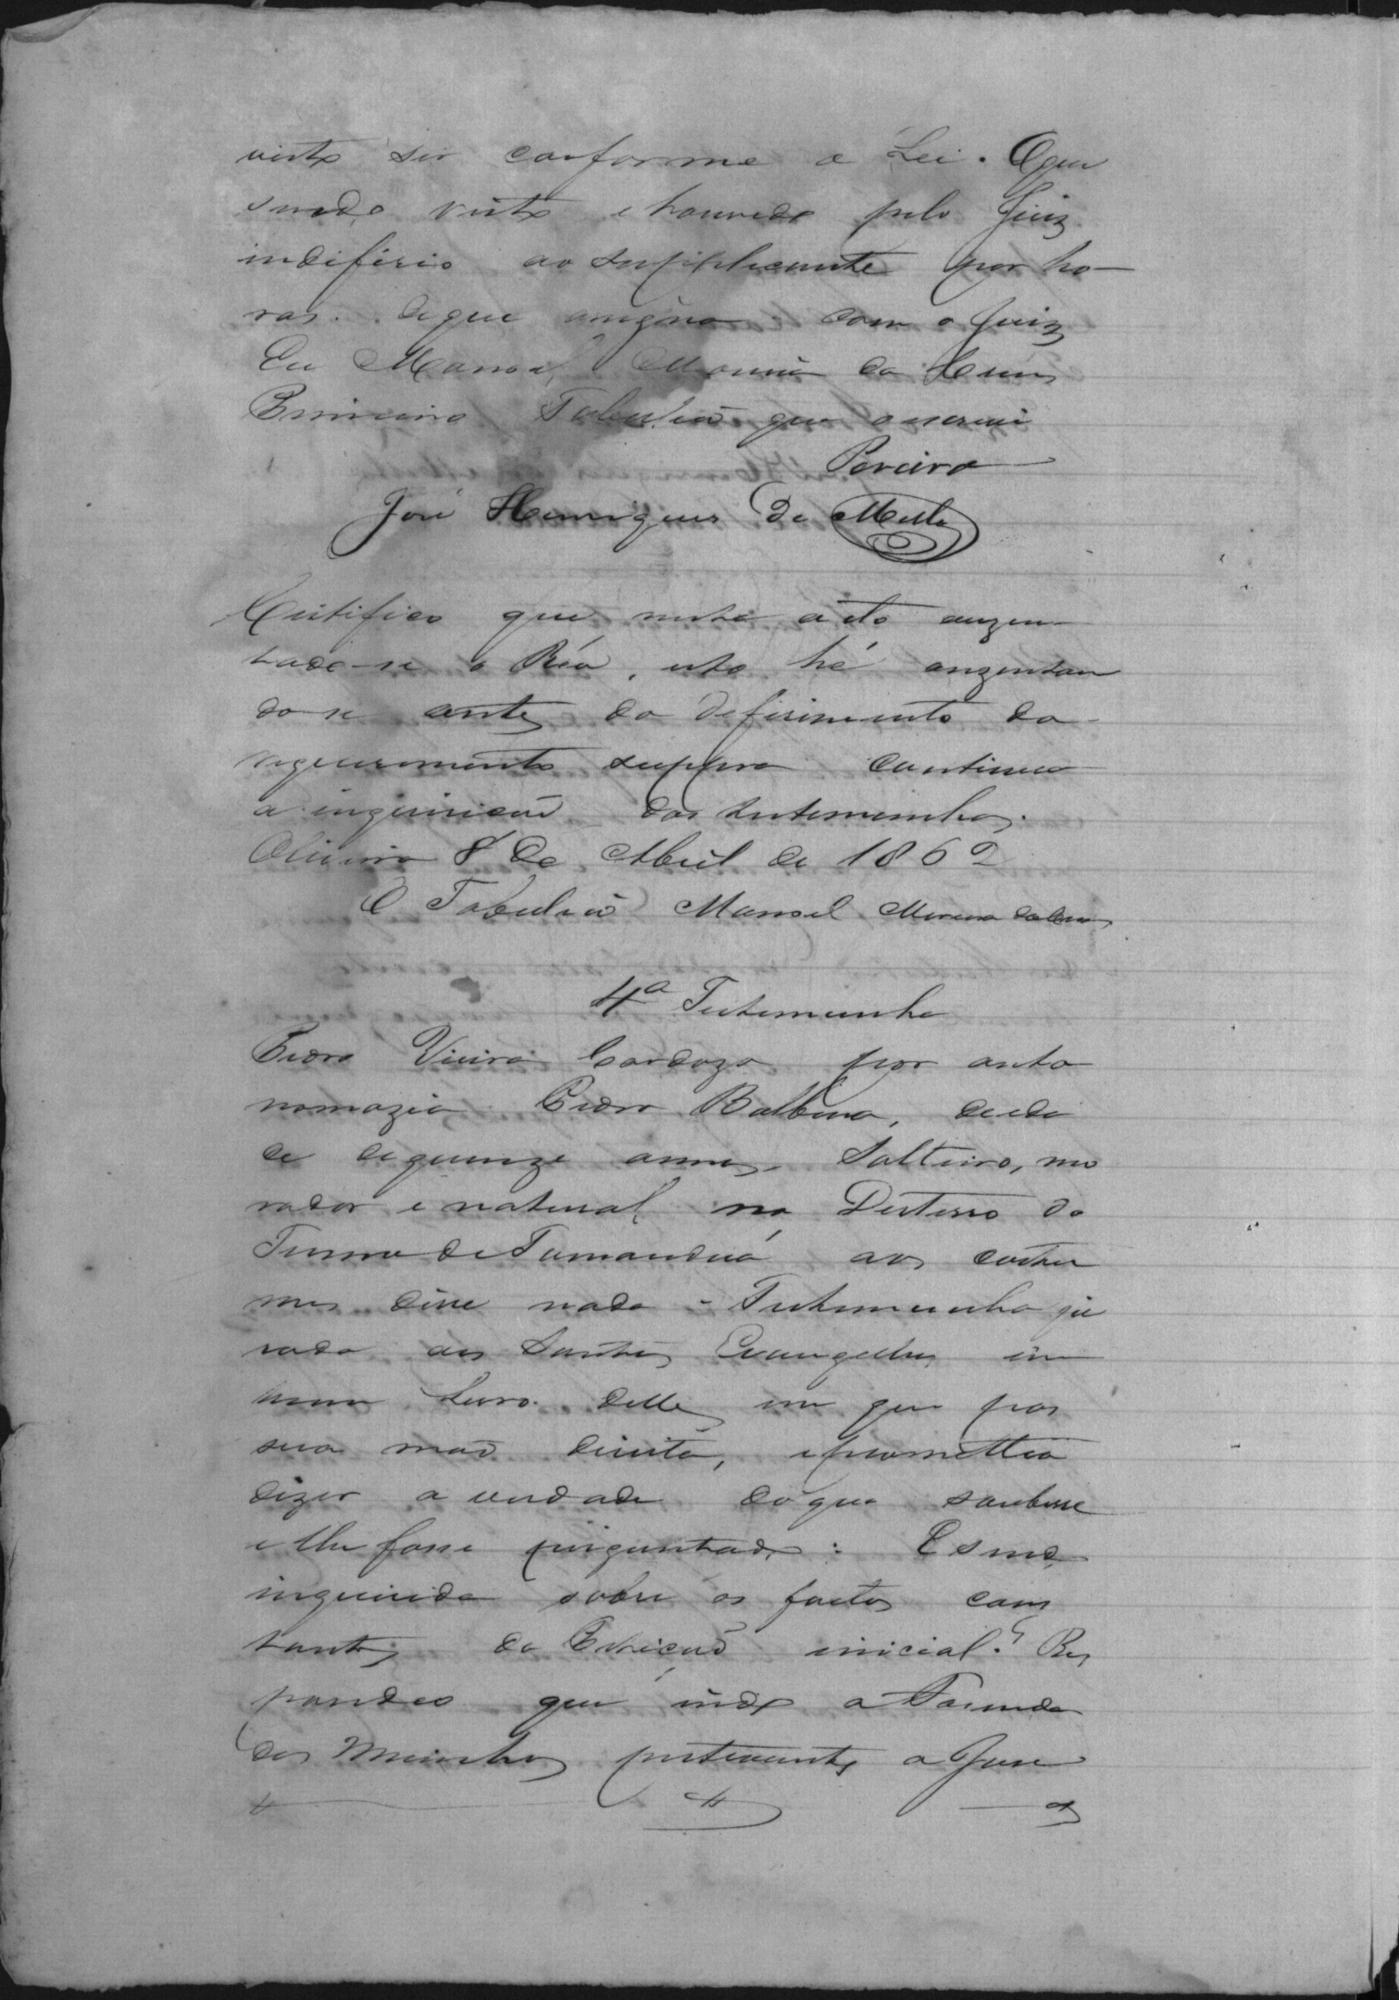 visto ser conforme a Lei. O que
sendo visto e houvido pelo Juiz
indiferio ao supplicante por ho-
ras. De que assigna com o Juiz
Eu Manoel Moreira da
Primeiro Tabelião que o escrevi
Pereira
José Henriques de Mello
Certifico que neste acto auzen-
tado-se o Réo, isto hé auzentan
do-se antes do deferimento do
requerimento supra continua
a inquirição das testemunhas.
Oliveira 8 de Abril de 1862
O Tabelião Manoel Moreira da
4ª Testemunha
Pedro Vieira Cardozo por anto
nomazia Pedro Balbino, idade
de quinze annos Solteiro, mo
rador e natural no Desterro do
Termo de Tamanduá aos costu
mes disse nada - Testemunha ju
rada aos Santos Evangelhos em
um Livro delles em que pos
sua mão direita, e prometteo
dizer a verdade do que soubesse
e lhe fosse perguntado: E sendo
inquirida sobre os factos cons
tantes da Petição inicial? Res
pondeo que indo a Fazenda
dos Moinhos pertencente a José